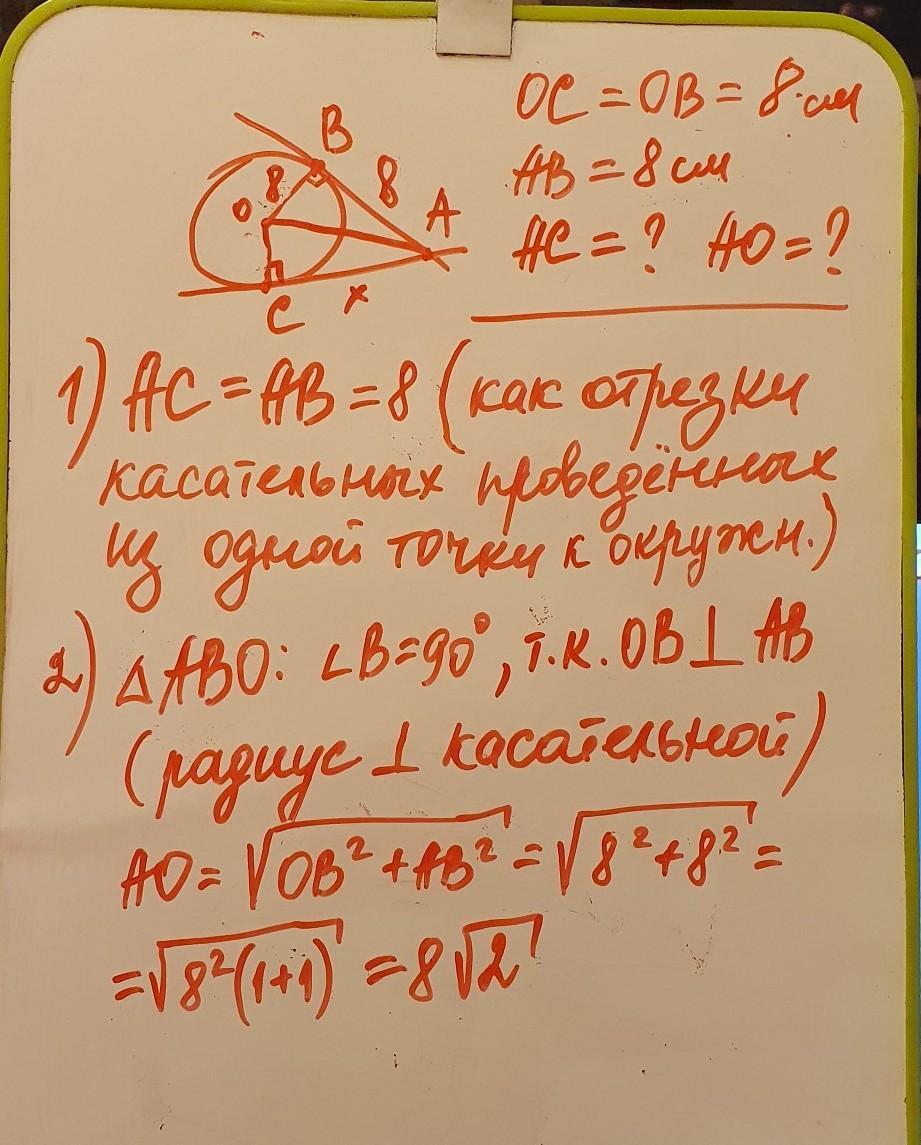 OC = OB = 8 см
AB = 8 см
AC = ? AO = ?
B
8
8
O
A
C
x
1) AC = AB = 8 (как отрезки
касательных проведённых
из одной точки к окружн.)
2) △ABO: ∠B=90°, т.к. OB⊥AB
(радиус ⊥ касательной)
AO = √(OB² + AB²) = √(8² + 8²) =
= √(8²(1+1)) = 8√2